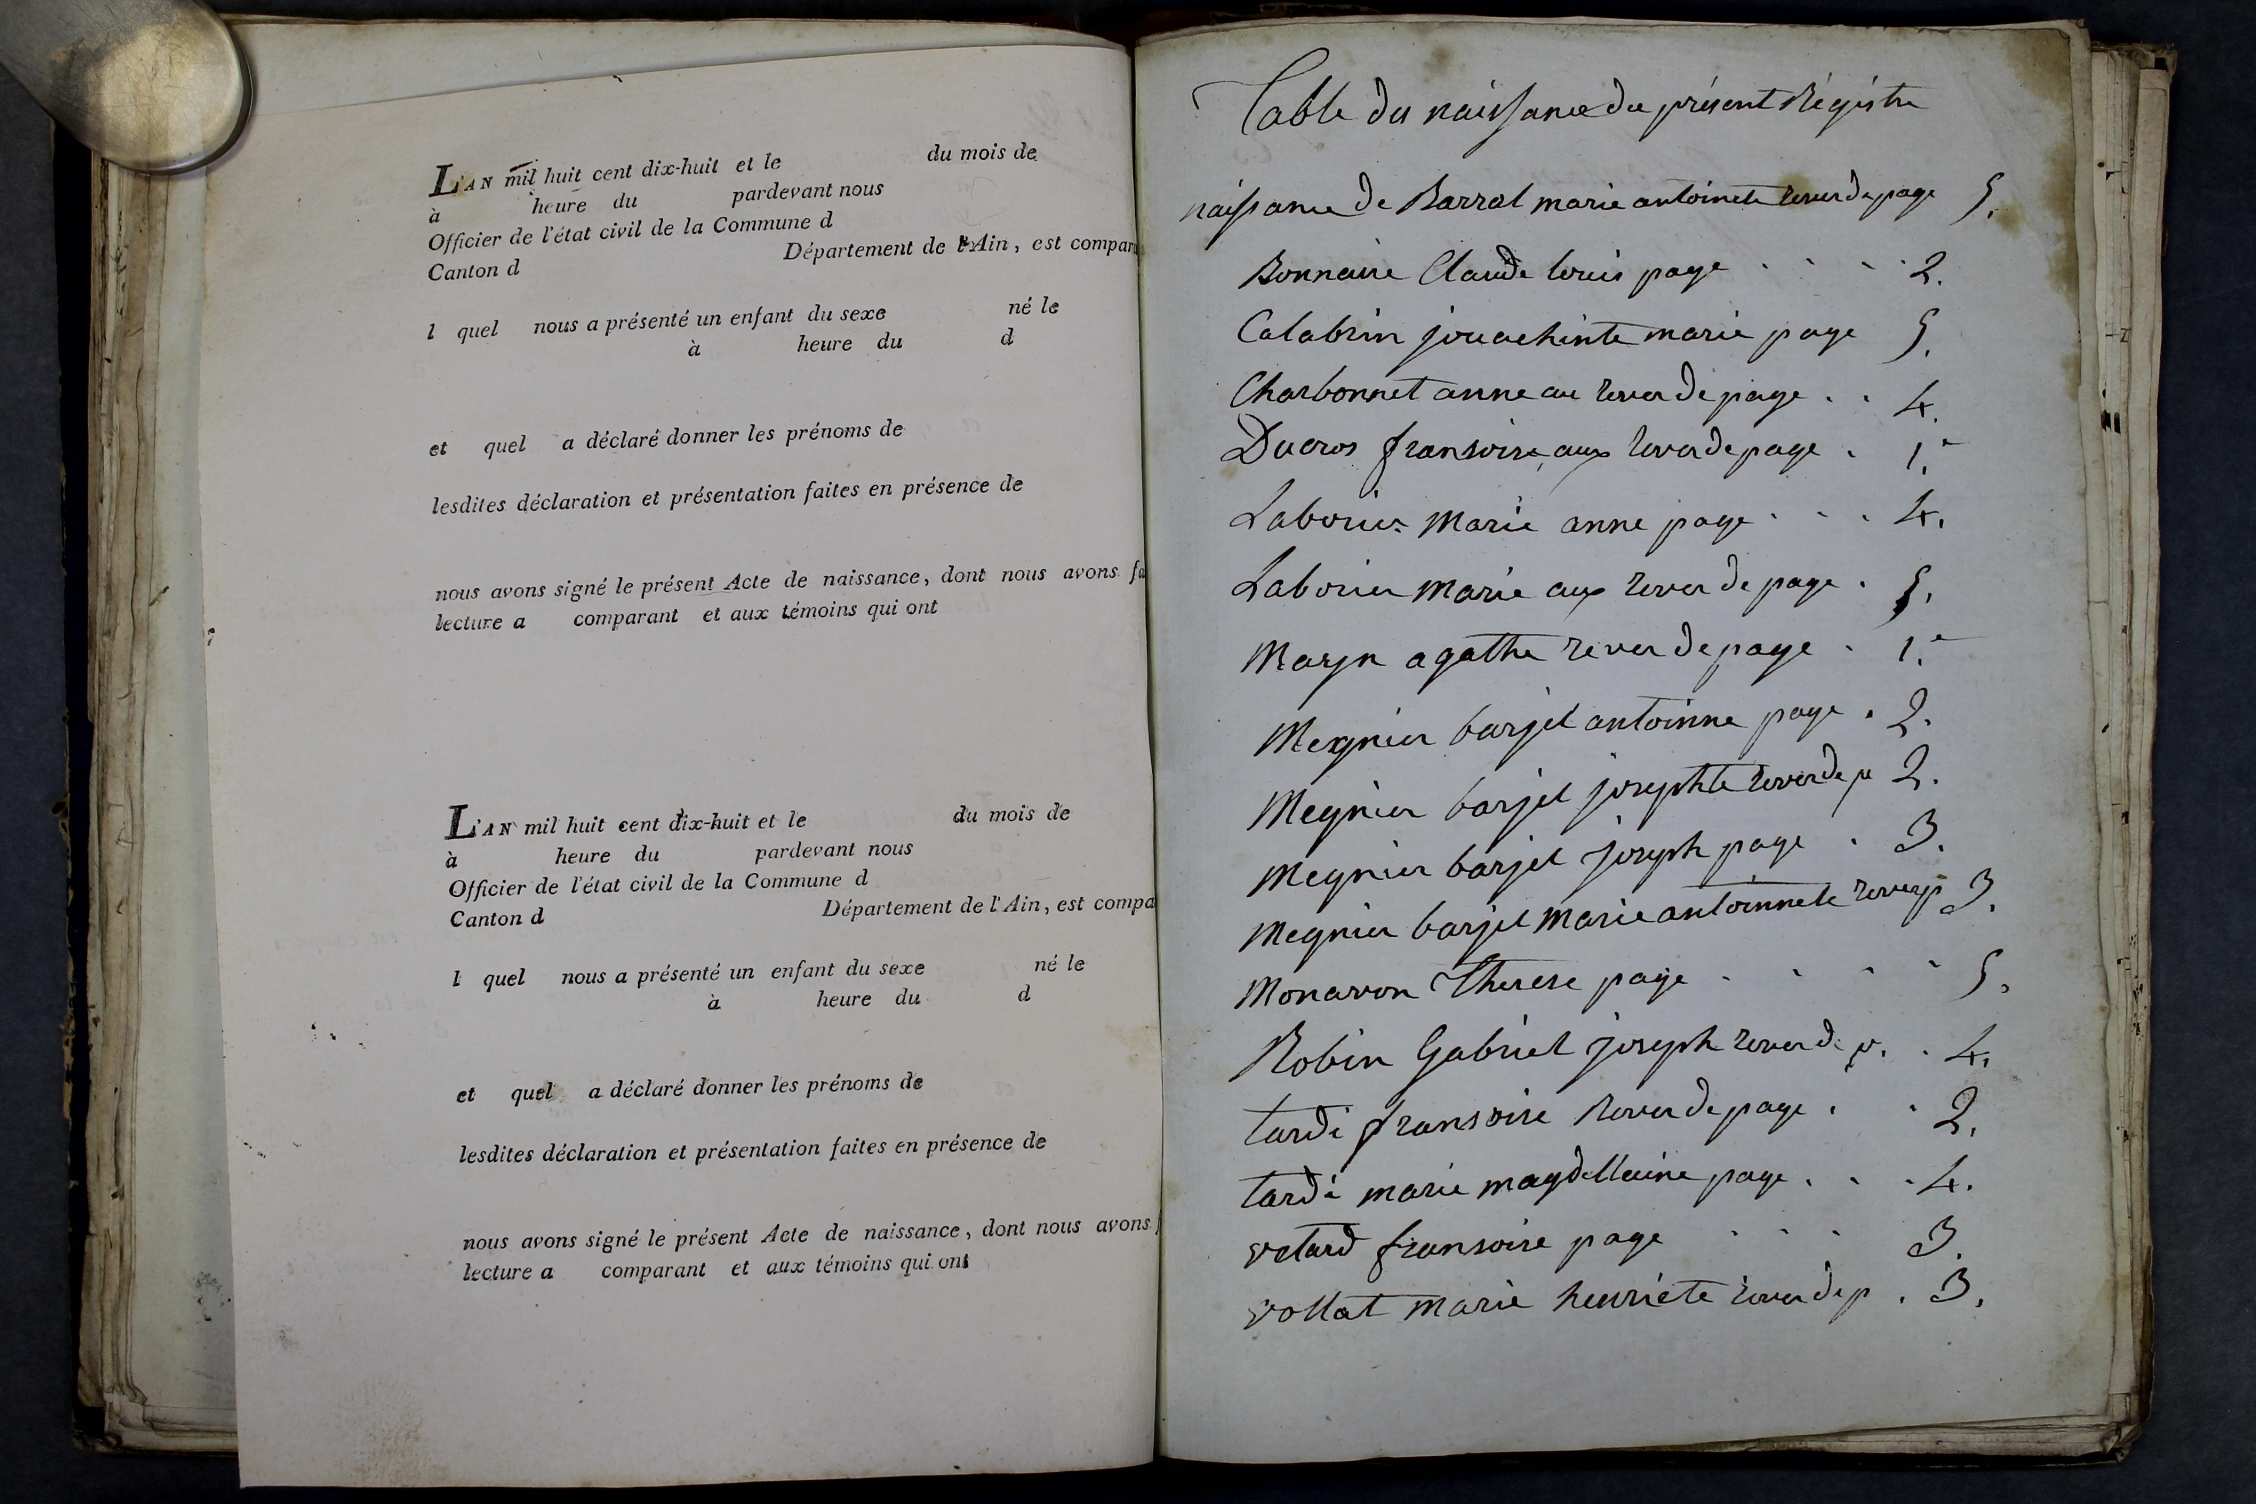 L'AN mil huit cent dix-huit et le du mois de
à heure du pardevant nous
Officier de l'état civil de la Commune d
Canton d Département de l'Ain, est comparu
l quel nous a présenté un enfant du sexe né le
à heure du d
et quel a déclaré donner les prénoms de
lesdites déclaration et présentation faites en présence de
nous avons signé le présent Acte de naissance, dont nous avons fa
lecture a comparant et aux témoins qui ont
L'AN mil huit cent dix-huit et le du mois de
à heure du pardevant nous
Officier de l'état civil de la Commune d
Canton d Département de l'Ain, est compa
l quel nous a présenté un enfant du sexe né le
à heure du d
et quel a déclaré donner les prénoms de
lesdites déclaration et présentation faites en présence de
nous avons signé le présent Acte de naissance, dont nous avons
lecture a comparant et aux témoins qui ont
Table des naissance du présent Régistre
naissance de Barral marie antoinete rever de page 5.
Bonnaire Claude louis page . . . . 2.
Calabrin jouachinte marie page 5.
Charbonnet anne au rever de page . . 4.
Ducros fransoise aux rever de page . 1.e
Laborier Marie anne page . . . 4.
Laborier Marie aux rever de page . 5.
Maryn agathe rever de page . 1.e
Megnier barjet antoinne page . 2.
Megnier barjet josephte rever de p 2.
Megnier barjet joseph page . 3.
Megnier barjet Marie antoinnete rever p 3.
Monavon Therese page . . . . 5.
Robin Gabriel joseph rever de p. . 4.
tardi fransoise Rever de page . . 2.
tardi marie magdellaine page . . . 4.
vetard fransoise page . . . 3.
vollat marie henriete rever de p . 3.